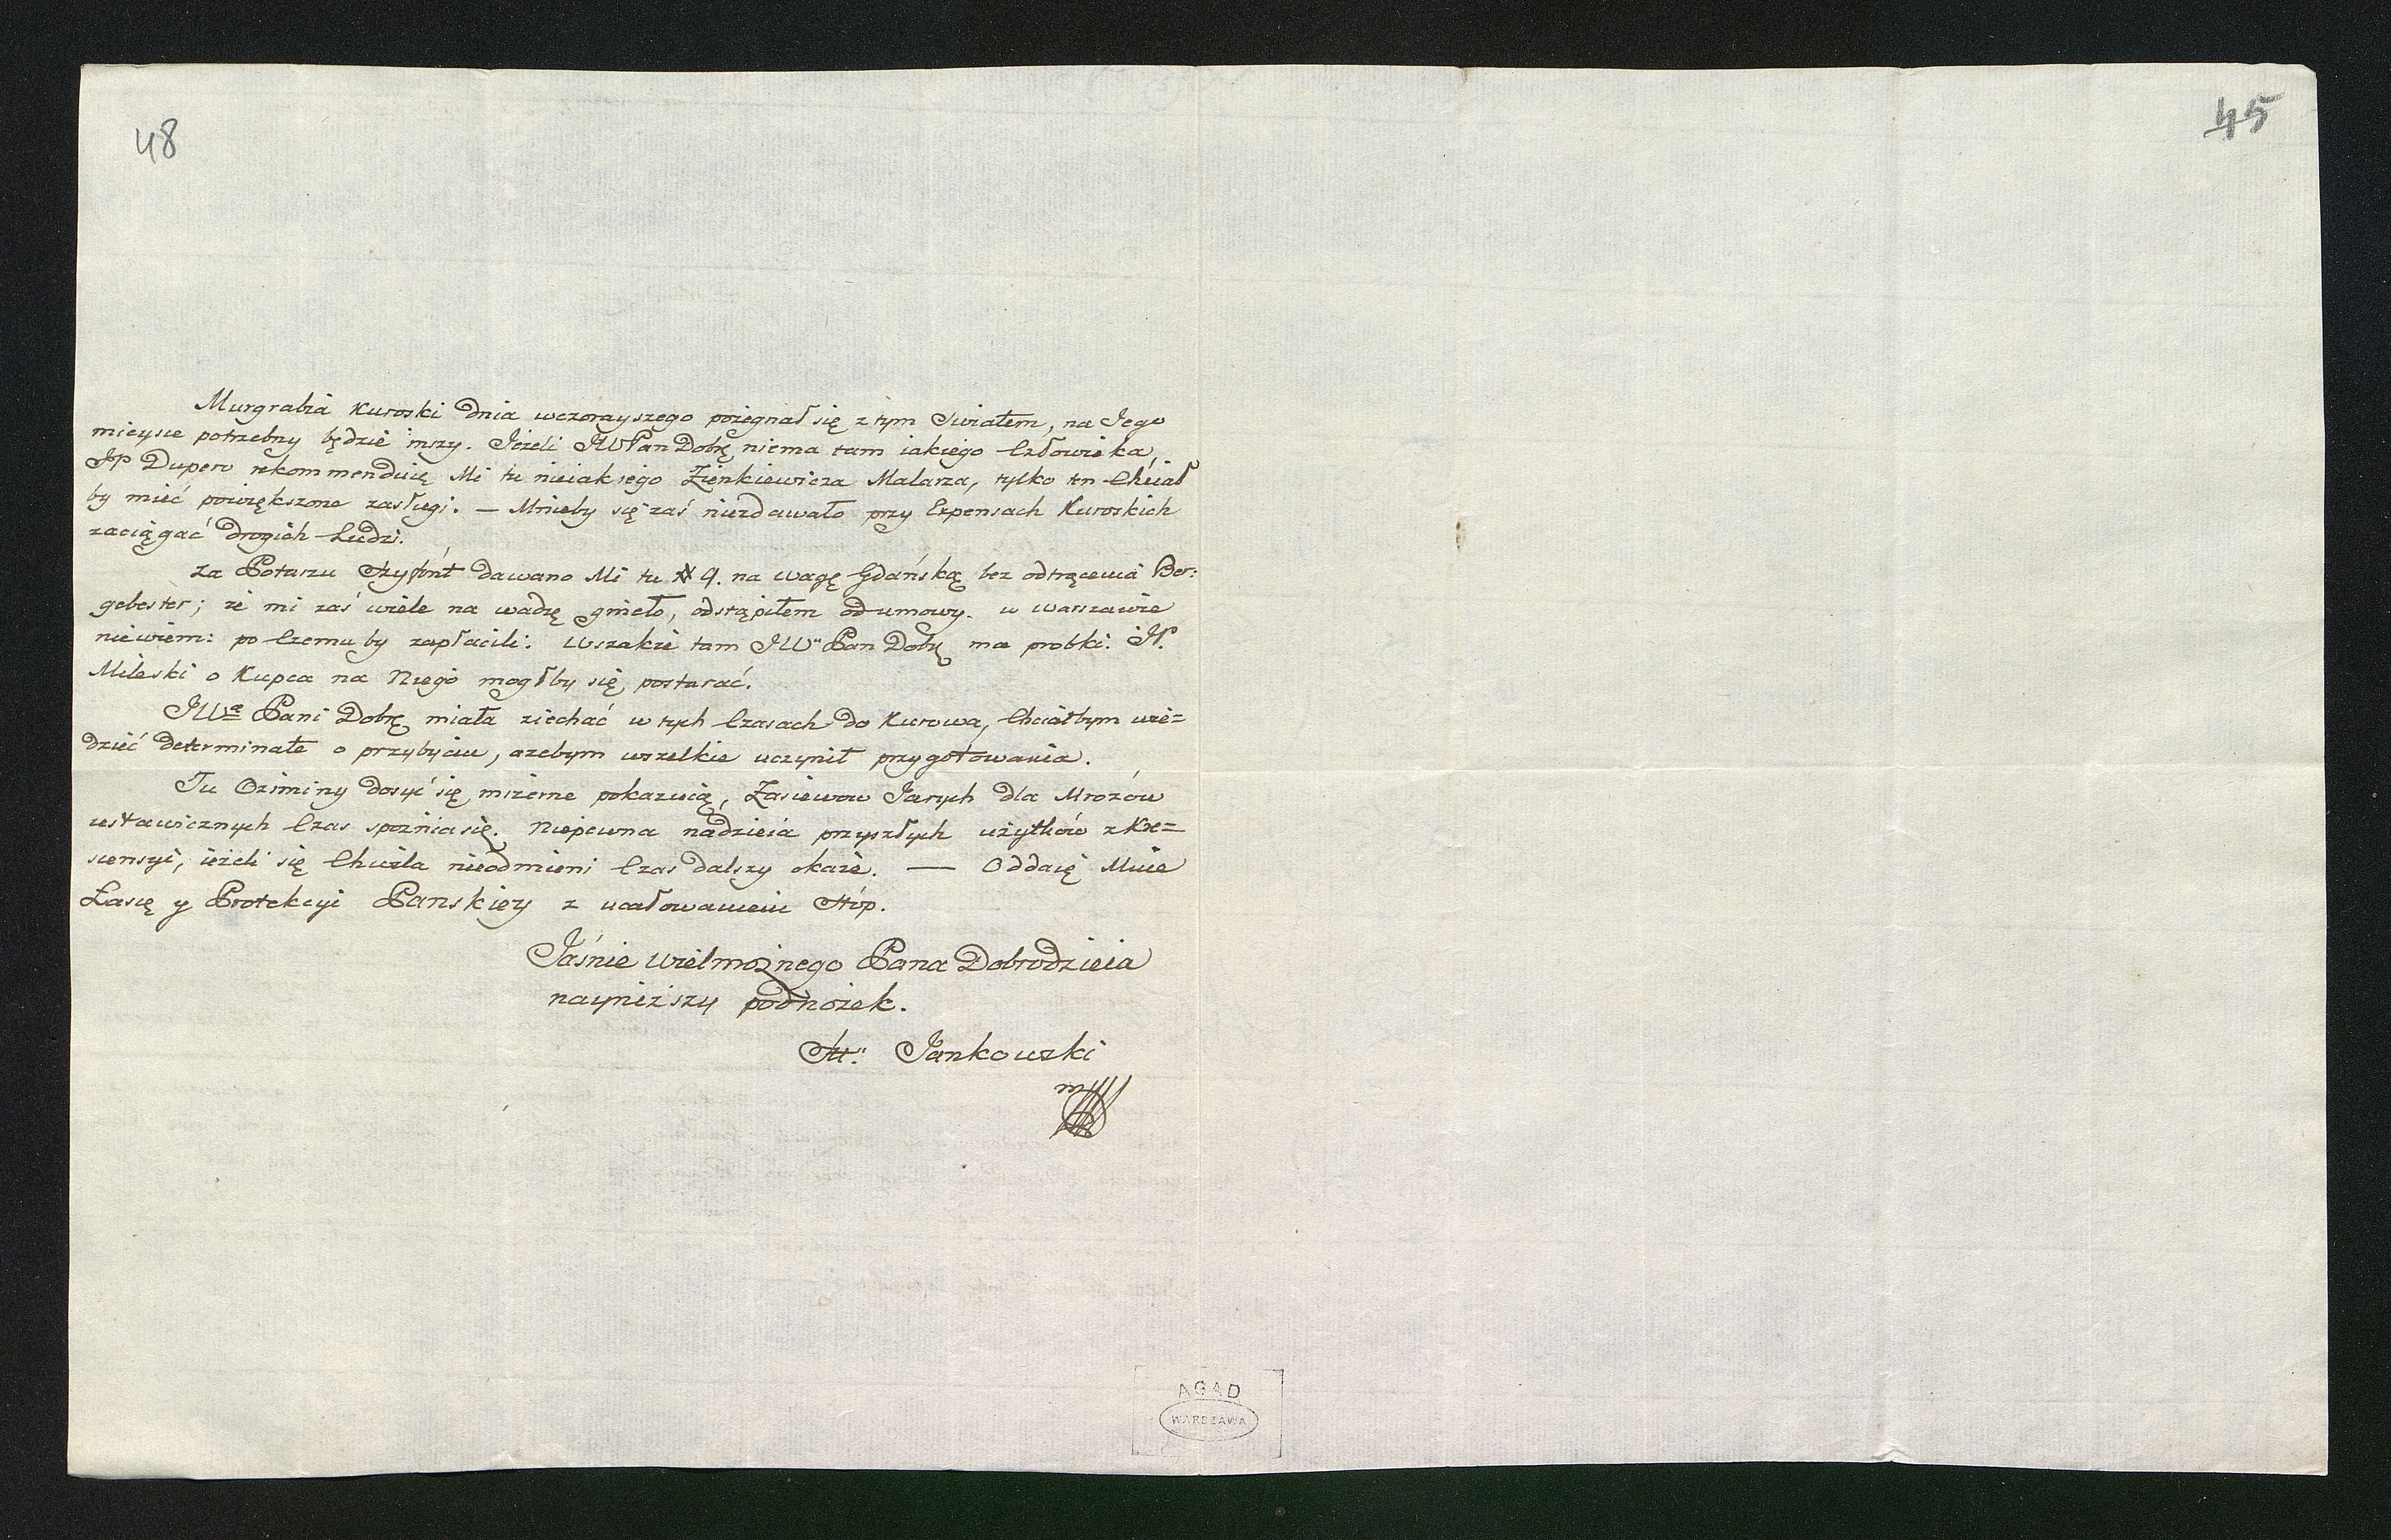 48
45
Murgrabia Kuroski Dnia wczorayszego pożegnał się z tym Swiatem, na Jego
mieysce potrzebny będzie inszy. Jeżeli JWPan Dobrę niema tam iakiego Człowieka,
JP Duperv rekommenduię Mi tu nieiakiego Zienkiewicza Malarza, tylko ten Chciał
by mieć powiększone zasługi. — Mnieby się zaś niezdawało przy Expensach Kuroskich
zaciągać Drogich Ludzi.
Za Potaszu dawano Mi tu 9. na wagę Gdańską bez odtrącenia Ber:
gebester; że mi zaś wiele na wadze gineło, odstąpiłem od umowy. w warszawie
niewiem: po Czemu by zapłacili: Wszakże tam JWn Pan Dobrę ma probki. JP.
Mileski o Kupca na Niego mogłby się postarać.
JWa Pani Dobrę miała ziechać w tych Czasach do Kurowa, Chciałbym wie=
dzieć Determinate o przybyciu, ażebym wszelkie uczynił przygotowania.
Tu Oziminy dosyć się mizerne pokazuią, Zasiewow Jarych dla Mrozów
ustawicznych Czas spoźnia się. Niepewna nadzieia przyszłych użytków z Kre=
scensyi, ieżeli się Chwila nieodmieni Czas dalszy okaże. — Oddaię Mnie
Łasce y Protekcyi Panskiey z ucałowaniem Stóp.
Jaśnie Wielmożnego Pana Dobrodzieia
nayniższy podnożek.
Jankowski
AGAD
WARSZAWA